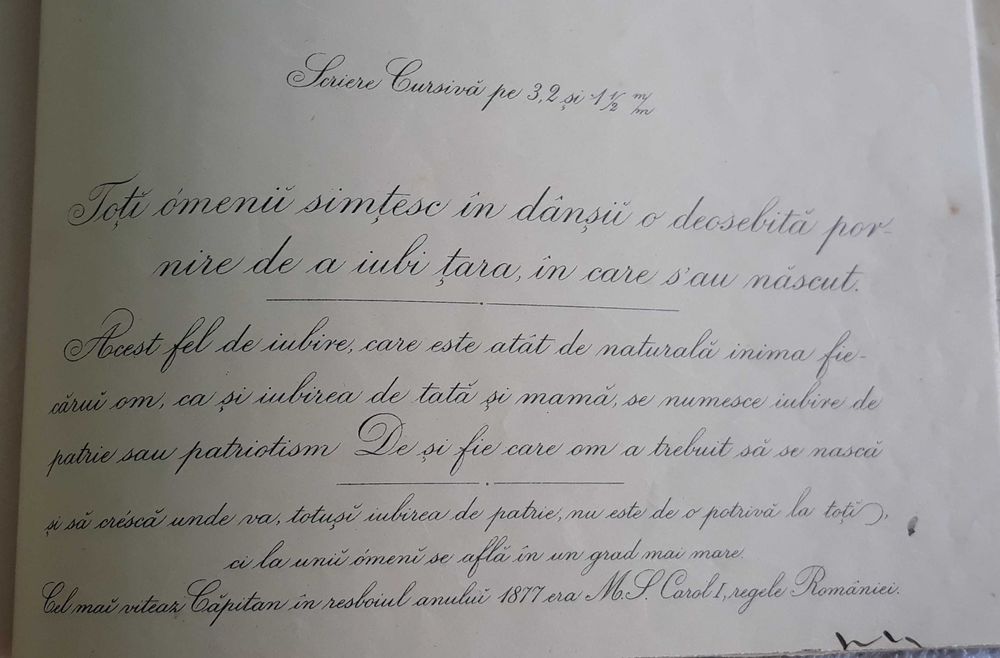 Scriere Cursivă pe 3,2 și 1 1/2 m/m
Toțĭ ómeniĭ simțesc în dânșiĭ o deosebită por-
nire de a iubi țara, în care s'au născut.
Acest fel de iubire, care este atât de naturală inima fie-
căruĭ om, ca și iubirea de tată și mamă, se numesce iubire de
patrie sau patriotism De și fie care om a trebuit să se nască
și să créscă unde va, totușĭ iubirea de patrie, nu este de o potrivă la toțĭ,
ci la uniĭ ómenĭ se află în un grad mai mare.
Cel mai viteaz Căpitan în resboiul anuluĭ 1877 era M.S. Carol I, regele României.